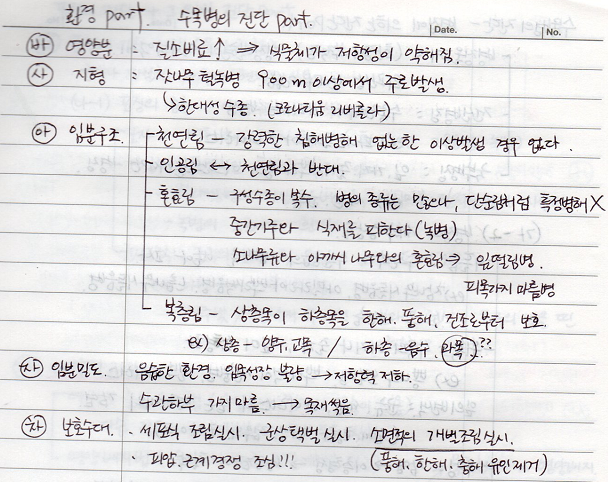 환경 part. 수목병의 진단 part.
Date. No.
바 영양분 : 질소비료↑ → 식물체가 저항성이 약해짐.
사 지형 : 잣나무 털녹병 900m 이상에서 주로발생.
↳한대성 수종. (크로나티움 리비콜라)
아 임분구조. 천연림 - 강력한 침해병해 없는한 이상발생 경우 없다.
- 인공림 ↔ 천연림과 반대.
- 혼효림 - 구성수종이 복수. 병의 종류는 많으나, 단순림처럼 특정병해 X
중간기주와 식재를 피한다 (녹병)
소나무류와 아까시 나무와의 혼효림 ⇒ 잎떨림병.
피목가지마름병
복층림 - 상층목이 하층목을 한해.풍해.건조로부터 보호.
ex) 상층 - 양수.교목 / 하층 - 음수. 관목 ??
자 임분밀도. 음습한 환경. 임목성장 불량 → 저항력 저하.
수관하부 가지마름. → 목재썩음.
차 보호수대. · 세포식 조림실시. 군상택벌실시. 소면적의 개벌조림실시.
· 피압.근계경쟁 조심!!! (풍해.한해.충해 유인제거)